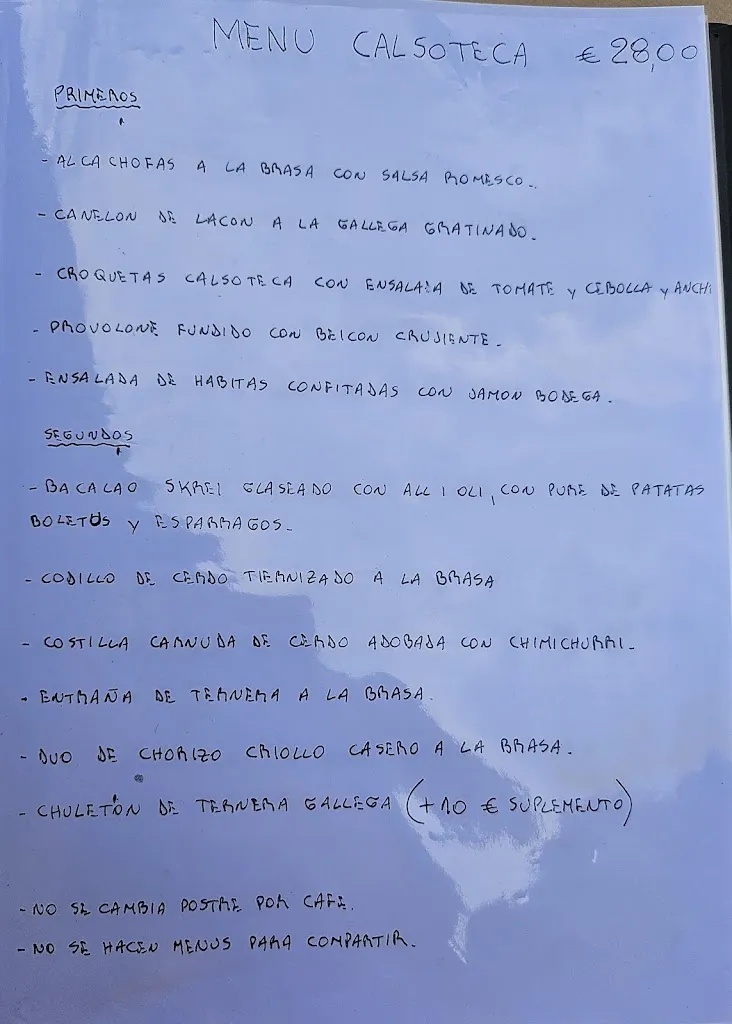 MENU CALSOTECA € 28,00
PRIMEROS
- ALCACHOFAS A LA BRASA CON SALSA ROMESCO.
- CANELON DE LACON A LA GALLEGA GRATINADO.
- CROQUETAS CALSOTECA CON ENSALADA DE TOMATE y CEBOLLA y ANCH
- PROVOLONE FUNDIDO CON BEICON CRUJIENTE.
- ENSALADA DE HABITAS CONFITADAS CON JAMON BODEGA.
SEGUNDOS
- BACALAO SKREI GLASEADO CON ALL I OLI, CON PURE DE PATATAS
BOLETUS y ESPARRAGOS.
- CODILLO DE CERDO TIERNIZADO A LA BRASA
- COSTILLA CARNUDA DE CERDO ADOBADA CON CHIMICHURRI.
- ENTRAÑA DE TERNERA A LA BRASA.
- DUO DE CHORIZO CRIOLLO CASERO A LA BRASA.
- CHULETÓN DE TERNERA GALLEGA (+10 € SUPLEMENTO)
- NO SE CAMBIA POSTRE POR CAFE.
- NO SE HACEN MENUS PARA COMPARTIR.